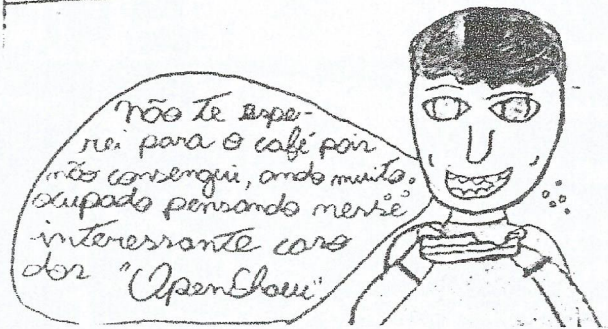 não te espe-
rei para o café pois
não consengui, ando muito
ocupado pensando nesse
interessante caso
dos "OpenChau"